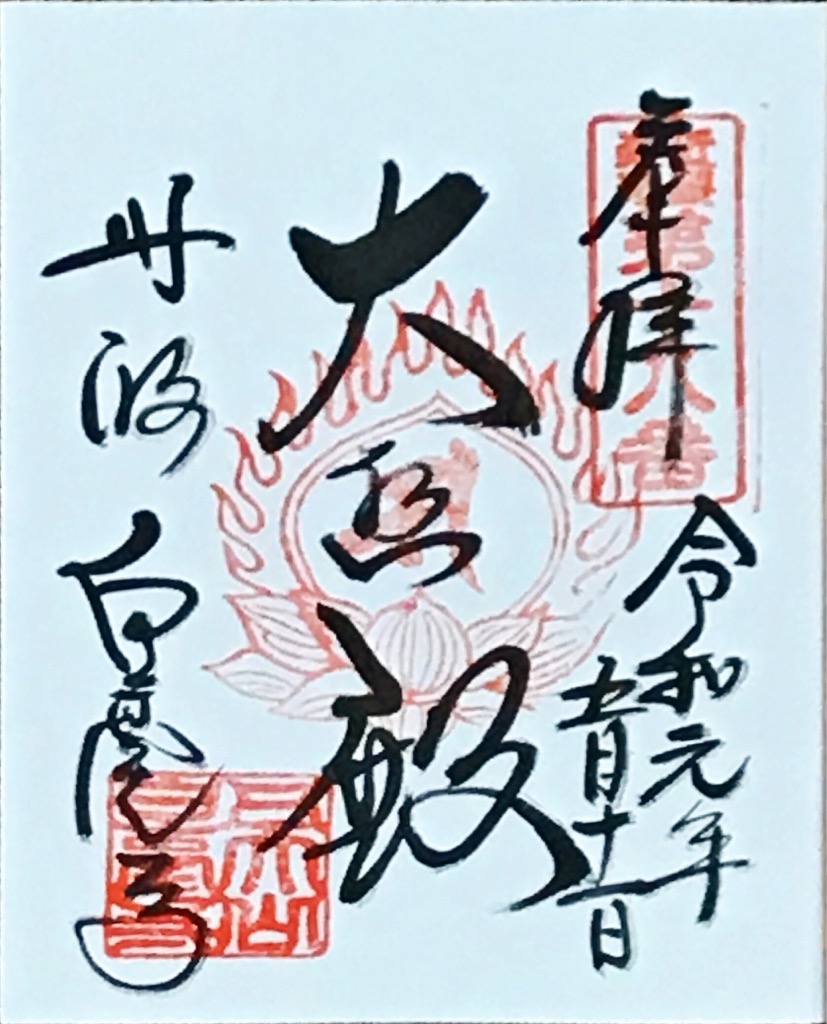 奉拝
令和元年
五月十二日
大悲殿
丹波
白毫寺